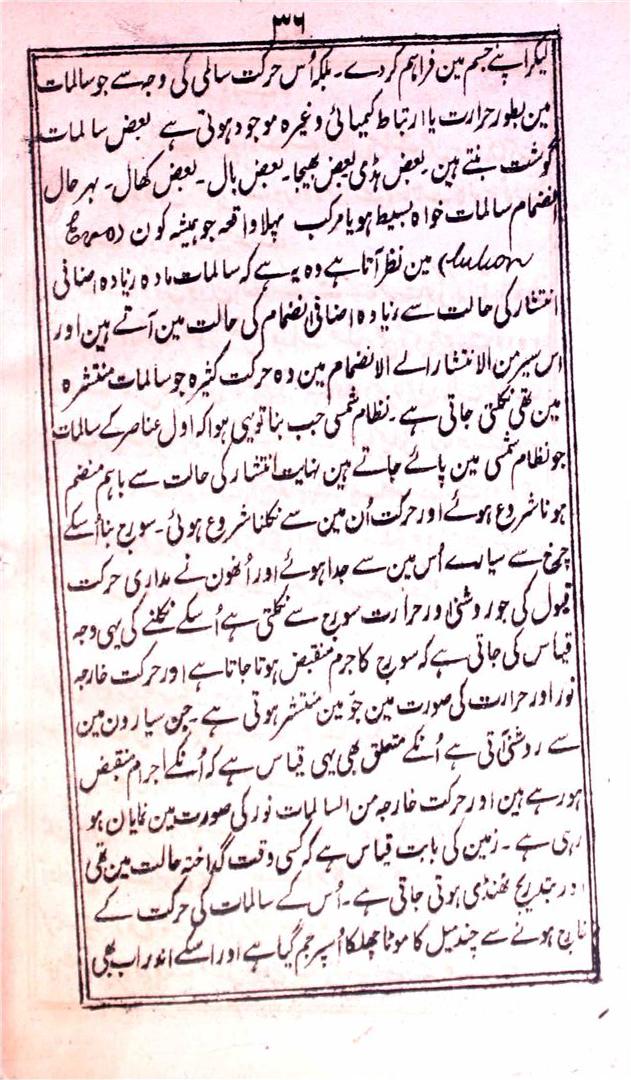 ۳۶
لیکر اپنے جسم مین فراہم کر دے۔ بلکہ اُس حرکت سالمی کی وجہ سے جو سالمات
مین بطور حرارت یا ارتباط کیمیائی وغیرہ موجود ہوتی ہے بعض سالمات
گوشت بنتے ہین۔ بعض ہڈی بعض بھیجا۔ بعض بال۔ بعض کھال۔ بہر حال
انضمام سالمات خواہ بسیط ہو یا مرکب پہلا واقعہ جو ہمیشہ کون
مین نظر آتا ہے وہ یہ ہے کہ سالمات مادہ زیادہ اضافی
انتشار کی حالت سے زیادہ اضافی انضمام کی حالت مین آتے ہین اور
اس سیر من الانتشار الے الانضمام مین وہ حرکت کثیرہ جو سالمات منتشرہ
مین تھی نکلتی جاتی ہے۔ نظام شمسی جب بنا تو یہی ہوا کہ اول عناصر کے سالمات
جو نظام شمسی مین پائے جاتے ہین نہایت انتشار کی حالت سے باہم منضم
ہونا شروع ہوئے اور حرکت اُن مین سے نکلنا شروع ہوئی۔ سورج بنا اُسکے
چرخ سے سیارے اُس مین سے جدا ہوئے اور اُنھون نے مداری حرکت
قبول کی جو روشنی اور حرارت سورج سے نکلتی ہے اُسکے نکلنے کی یہی وجہ
قیاس کی جاتی ہے کہ سورج کا جرم منقبض ہوتا جاتا ہے اور حرکت خارجہ
نور اور حرارت کی صورت مین جوّ مین منتشر ہوتی ہے۔ جن سیارون مین
سے روشنی آتی ہے اُنکے متعلق بھی یہی قیاس ہے کہ اُنکے اجرام منقبض
ہو رہے ہین اور حرکت خارجہ من السالمات نور کی صورت مین نمایان ہو
رہی ہے۔ زمین کی بابت قیاس ہے کہ کسی وقت گداختہ حالت مین تھی
اور بتدریج ٹھنڈی ہوتی جاتی ہے۔ اُس کے سالمات کی حرکت کے
خارج ہونے سے چند میل کا موٹا چھلکا اُسپر جم گیا ہے اور اسکے اندر اب بھی